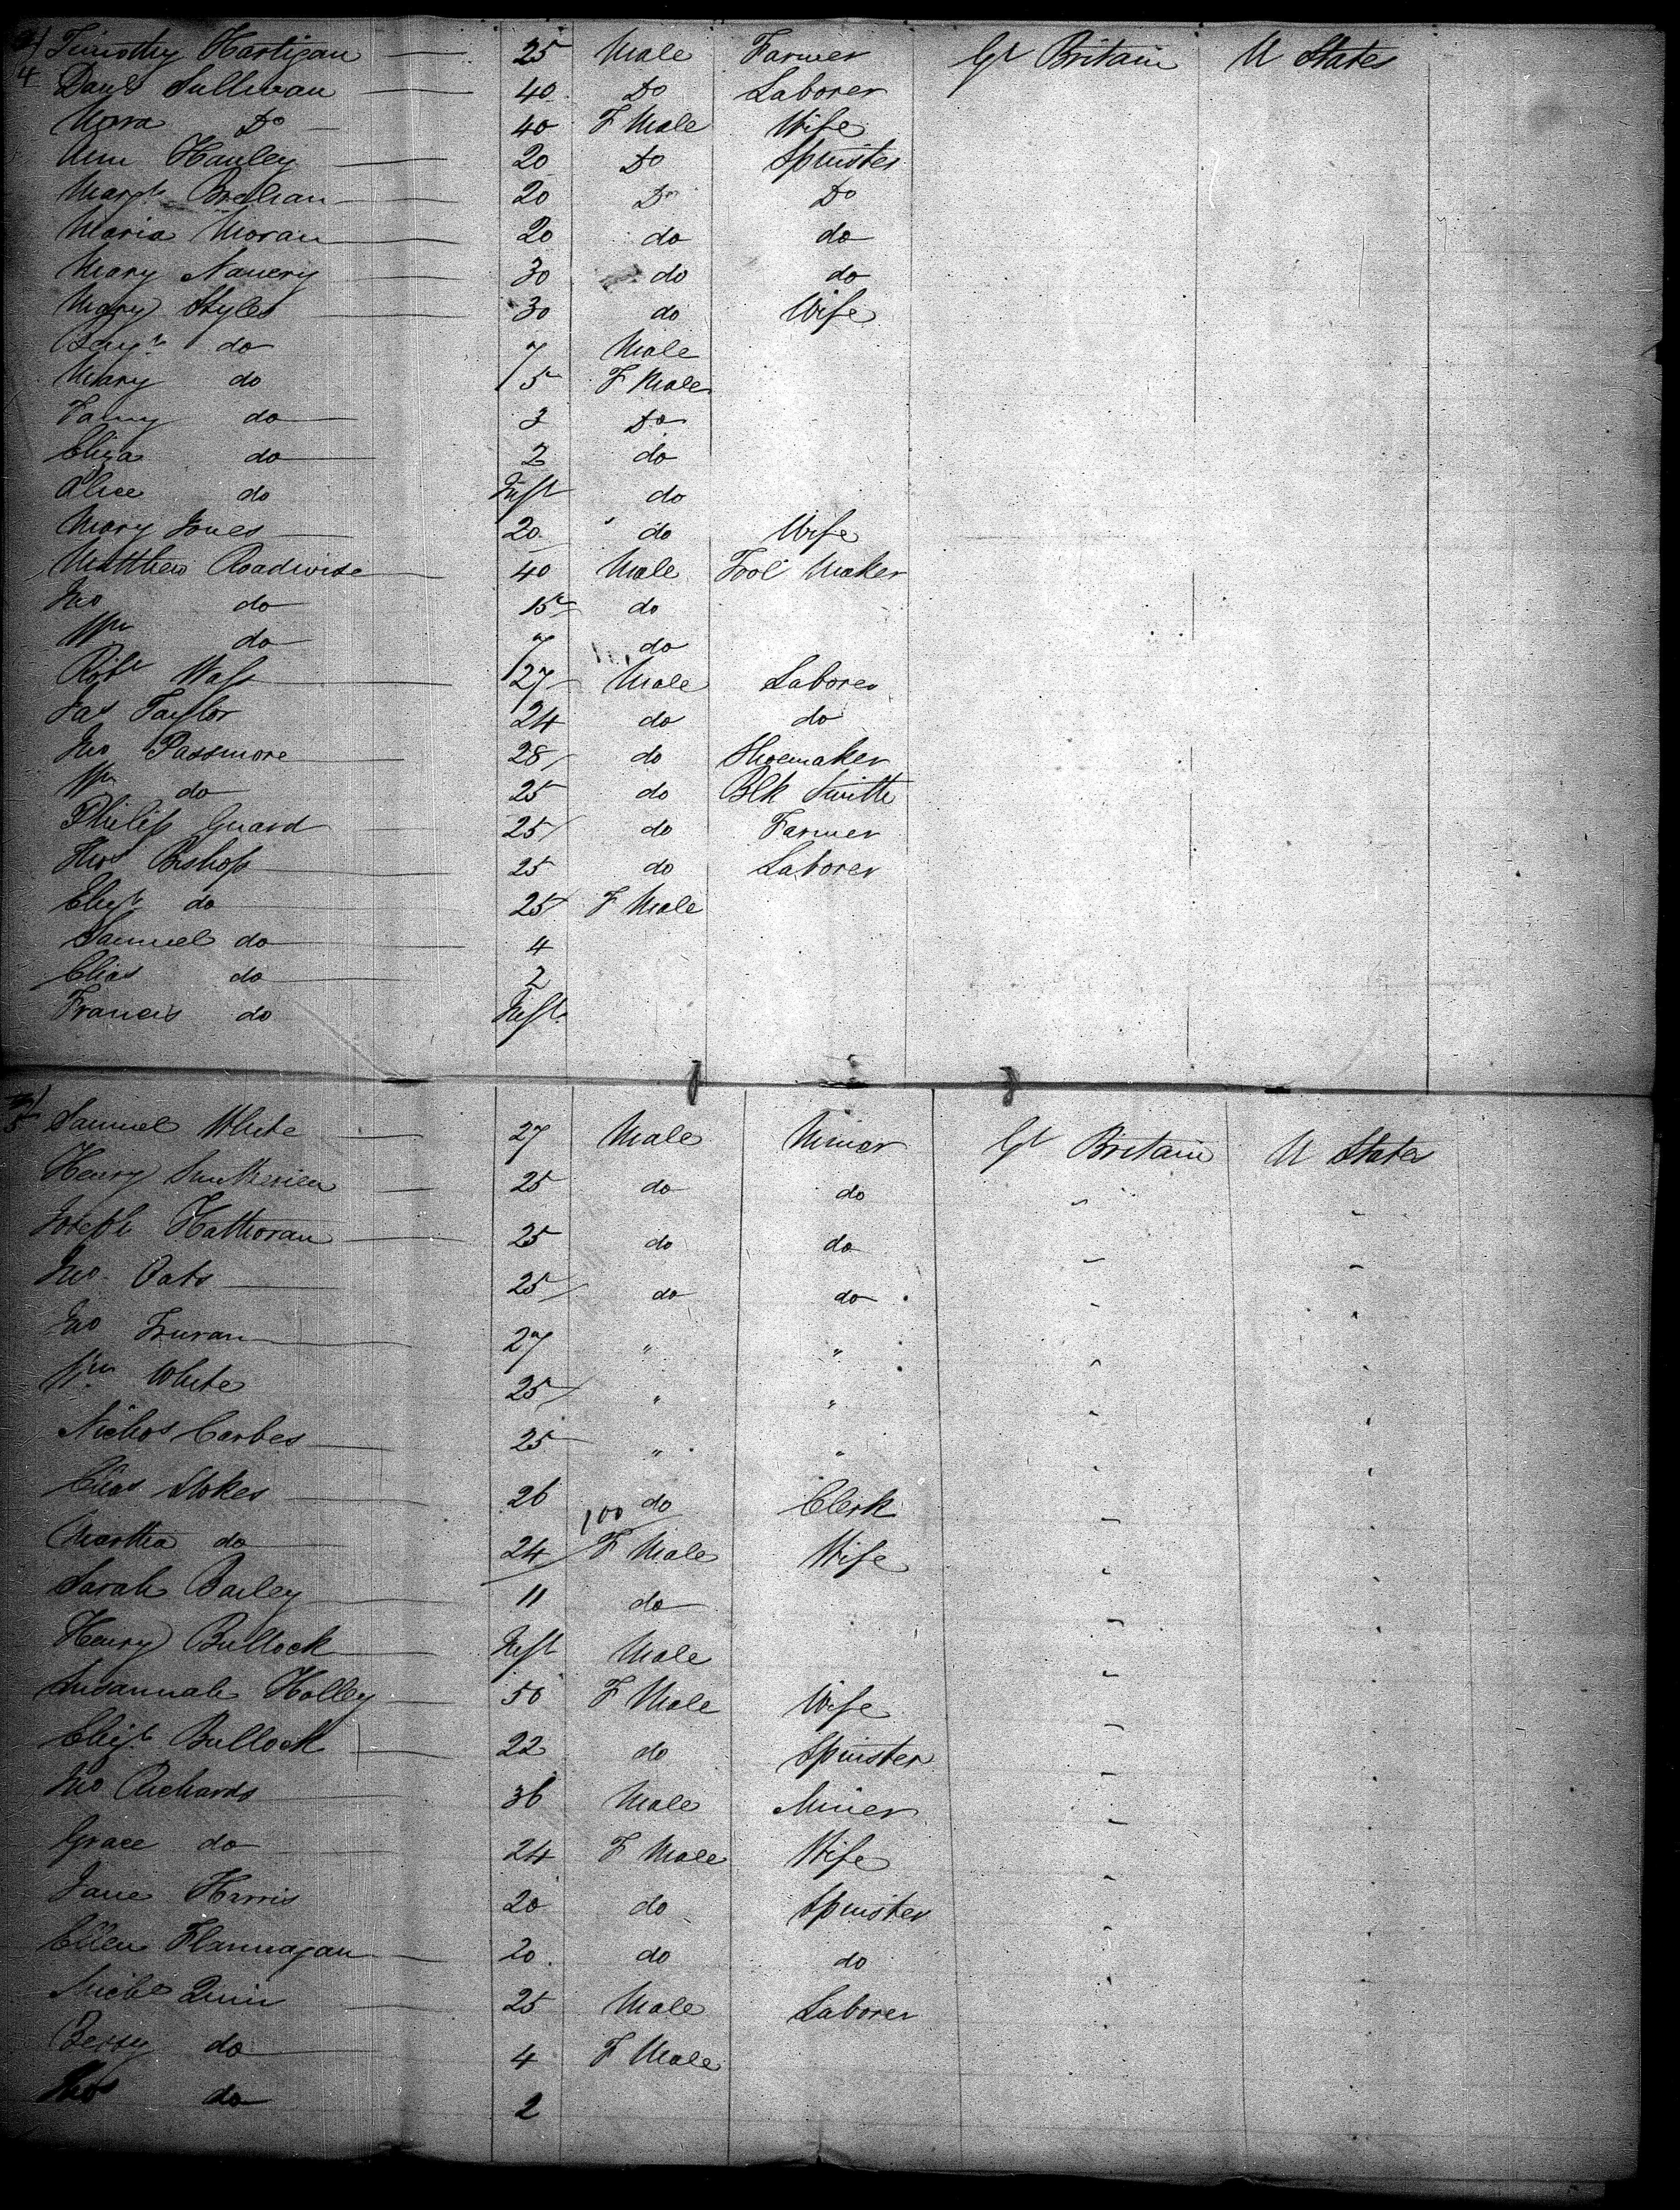 4 Timothy Hartigan 25 Male Farmer Gt Britain U States
Danl Sullivan 40 Do Laborer
Nora Do 40 F Male Wife
Ann Hanley 20 Do Spinster
Margt 20 Do Do
Maria Moran 20 do do
Mary 30 do do
Mary Styles 30 do Wife
Benjn do 7 Male
Mary do 5 F Male
Fanny do 3 Do
Eliza do 2 do
Alice do Inft do
Mary Jones 20 do Wife
Matthew Roadwise 40 Male Tool Maker
Jno do 15 do
Wm do 7 do
Robt 27 Male Laborer
Jas Taylor 24 do do
Jno Passmore 28 do Shoemaker
Wm do 25 do Blk Smith
Philip Guard 25 do Farmer
Thos Bishop 25 do Laborer
Elizh do 25 F Male
Samuel do 4
Elias do 2
Francis do Inft.
5 Samuel White 27 Male Miner Gt Britain U States
Henry 25 do do
Joseph Hathoran 25 do do
Jno. Oats 25 do do
Jno Truran 27 " "
Wm White 25 " "
Nichos 25 " "
Chas Stokes 26 100 do Clerk
Martha do 24 F Male Wife
Sarah Bailey 11 do
Henry Bullock Inft Male
Susannah Holley 50 F Male Wife
Elizh Bullock 22 do Spinster
Jno Richards 36 Male Miner
Grace do 24 F Male Wife
Jane Harris 20 do Spinster
Ellen Flannagan 20. do do
Michl Quin 25 Male Laborer
Bessy do 4 F Male
do 2